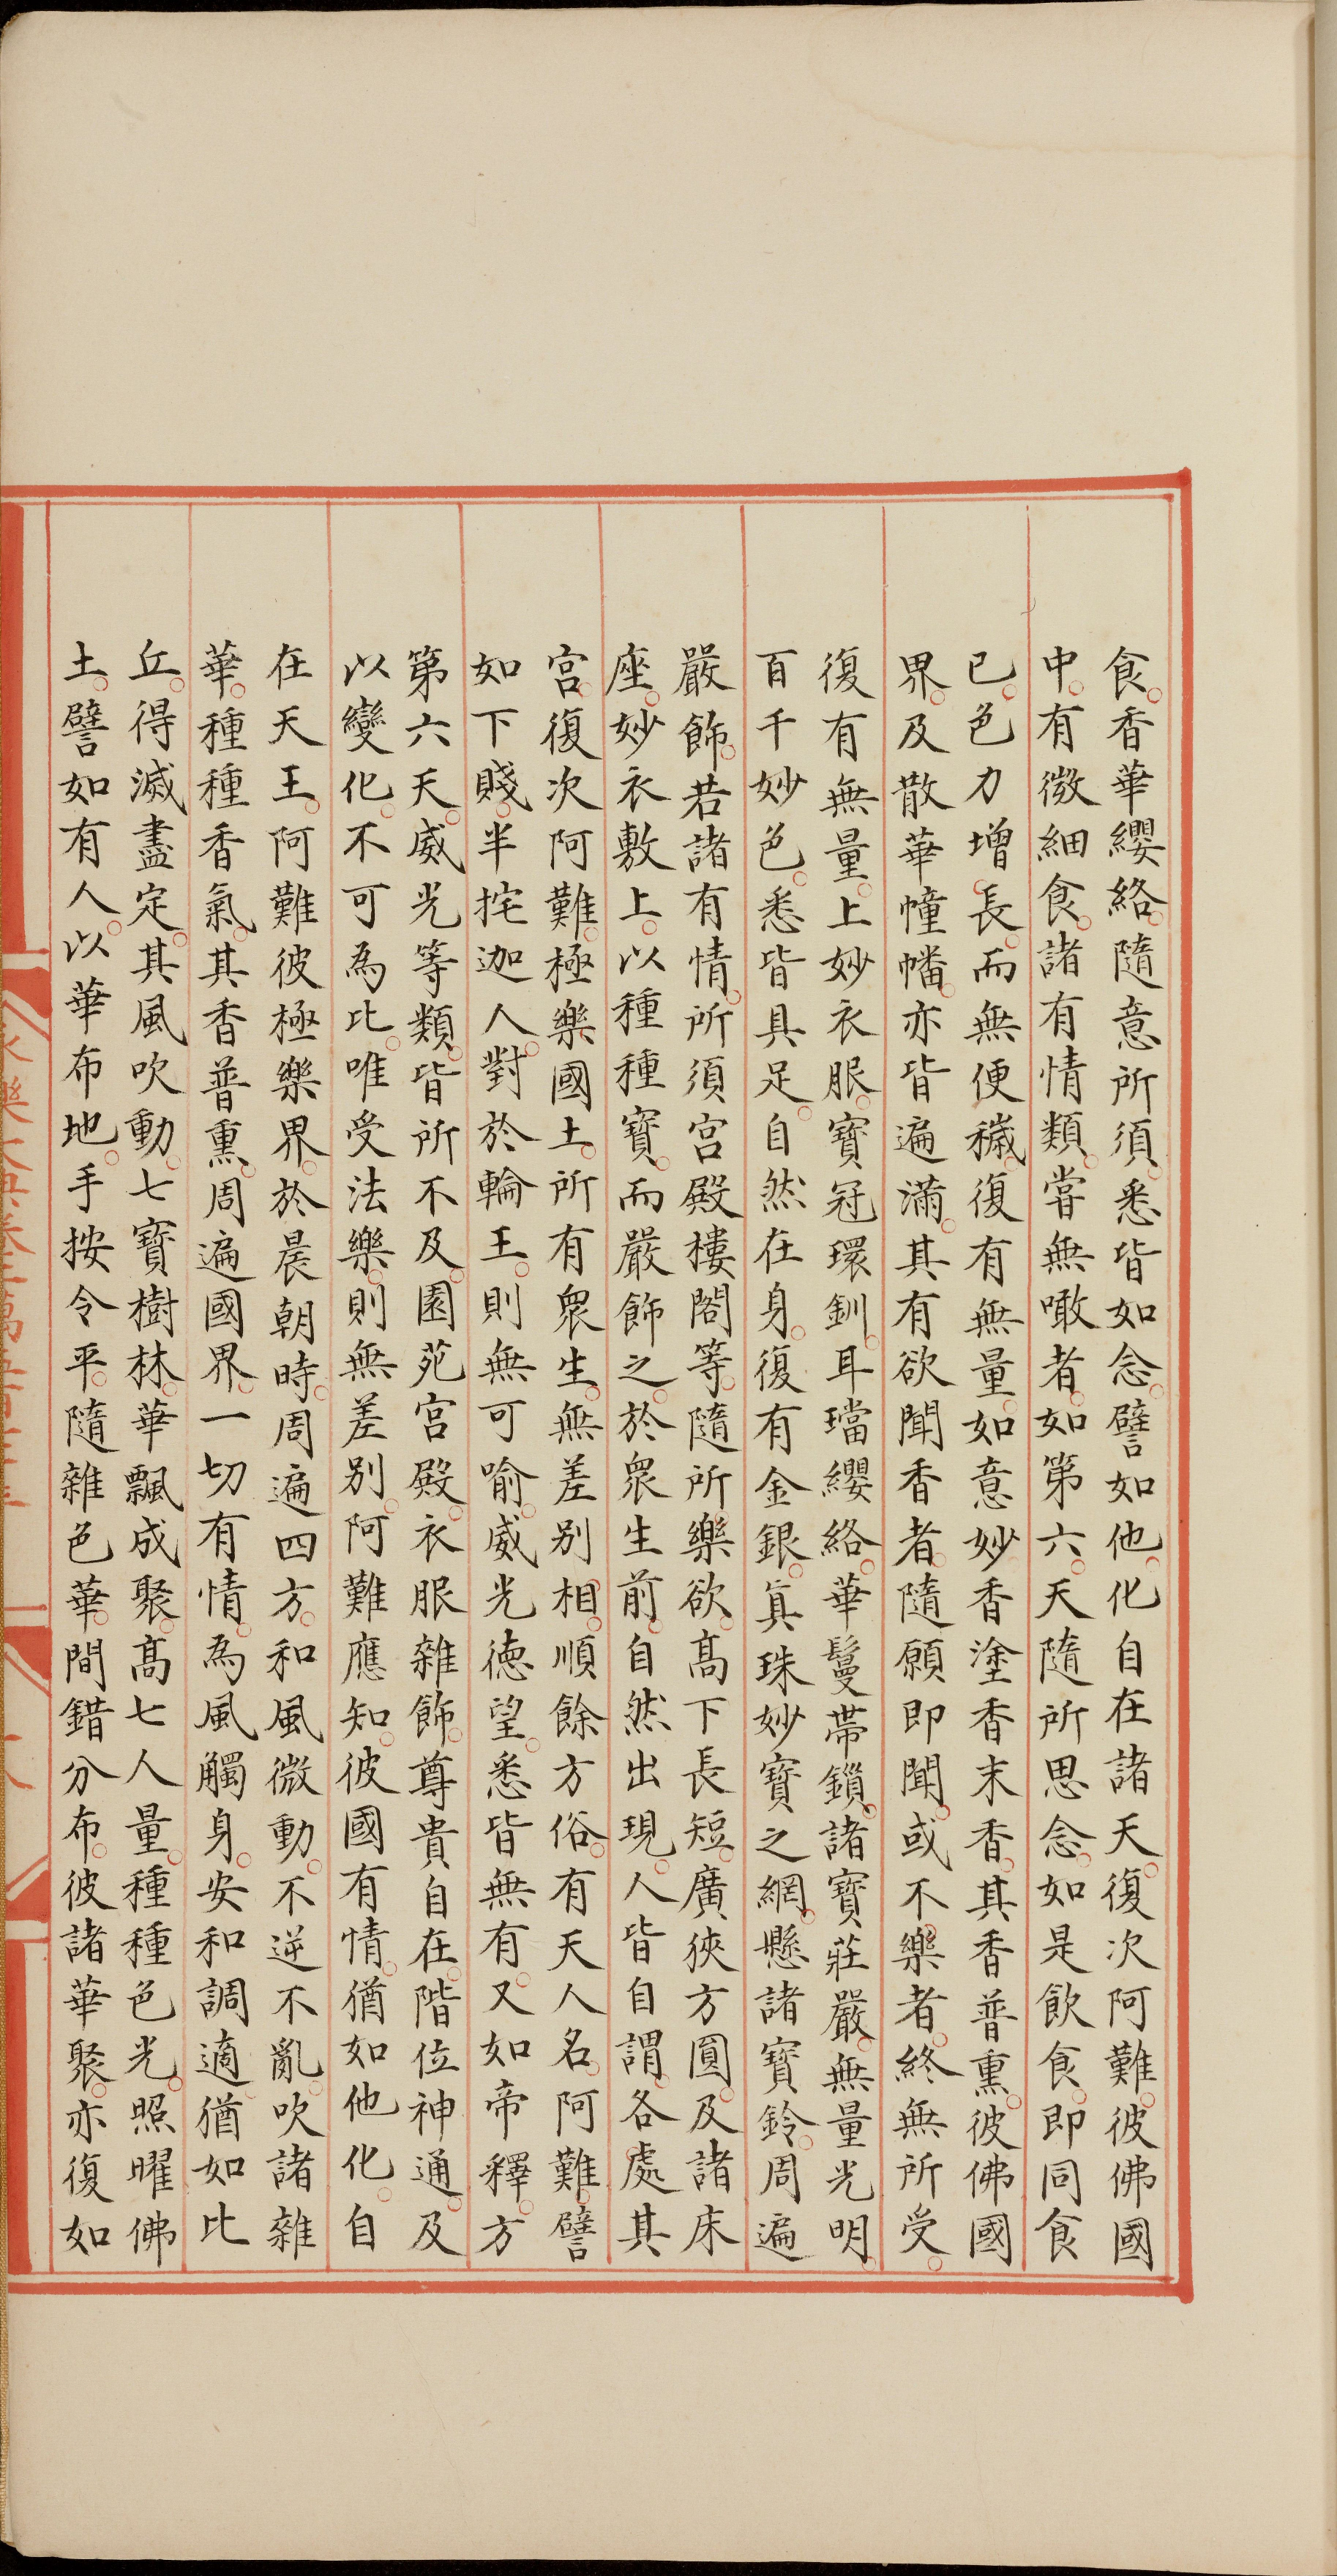 食。香華纓絡。隨意所須。悉皆如念。譬如他。化自在諸天。復次阿難。彼佛國
中。有微細食。諸有情類。嘗無噉者。如第六。天隨所思念。如是飲食。即同食
已。色力增。長。而無便穢。復有無量。如意妙香塗香末香。其香普熏。彼佛國
界。及散華幢幡。亦皆遍滿。其有欲聞香者。隨願即聞。或不樂者。終無所受。
復有無量。上妙衣服。寶冠環釧。耳璫纓絡。華鬘帶鎖。諸寶莊嚴。無量光明。
百千妙色。悉皆具足。自然在身。復有金銀。真珠妙寶之網。懸諸寶鈴。周遍
嚴飾。若諸有情。所須宮殿樓閣等。隨所樂欲。高下長短。廣狹方圓。及諸床
座。妙衣敷上。以種種寶。而嚴飾之。於眾生前。自然出現。人皆自謂。各處其
宮。復次阿難。極樂國土。所有眾生。無差别相。順餘方俗。有天人名。阿難。譬
如下賤。半挓迦人。對於輪王。則無可喻。威光德望。悉皆無有。又如帝釋。方
第六天。威光等類。皆所不及。園苑宮殿。衣服雜飾。尊貴自在。階位神通。及
以變化。不可為比。唯受法樂。則無差别。阿難應知。彼國有情。猶如他化。自
在天王。阿難彼極樂界。於晨朝時。周遍四方。和風微動。不逆不亂。吹諸雜
華。種種香氣。其香普熏。周遍國界。一切有情。為風觸身。安和調適。猶如比
丘。得滅盡定。其風吹動。七寶樹林。華飄成聚。高七人量。種種色光。照曜佛
土。譬如有人。以華布地。手按令平。隨雜色華。間錯分布。彼諸華聚。亦復如